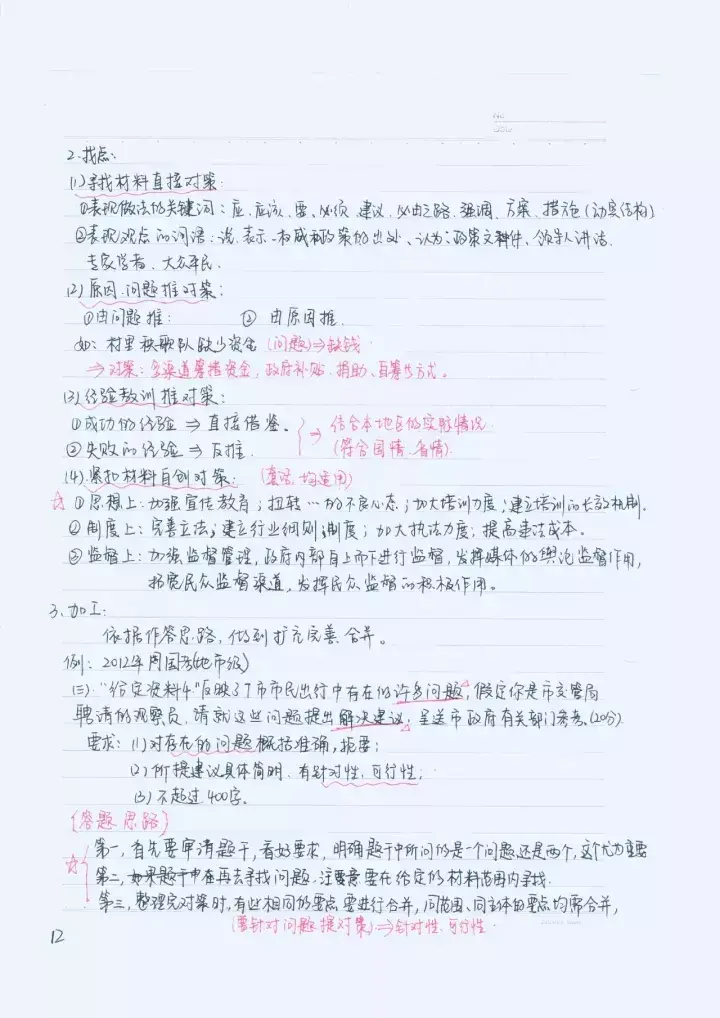 No.
Date
2.找点:
(1)寻找材料直接对策:
①表现做法的关键词:应、应该、要、必须、建议、必由之路、强调、方案、措施(动宾结构)
②表现观点的词语:说、表示、权威和政策的出处、认为:政策文件、领导人讲话、
专家学者、大众平民.
(2)原因、问题推对策:
①由问题推: ② 由原因推.
如:村里秧歌队缺少资金 (问题)⇒缺钱
⇒对策:多渠道筹措资金,政府补贴、捐助、自筹等方式。
(3)经验教训推对策:
①成功的经验 ⇒ 直接借鉴、 ⇒ 结合本地区的实际情况.
②失败的经验 ⇒ 反推. (符合国情、省情)
(4)紧扣材料自创对策: (套话、均适用)
☆ ①思想上:加强宣传教育;扭转…的不良心态;加大培训力度;建立培训的长效机制.
②制度上:完善立法;建立行业细则,制度;加大执法力度;提高违法成本.
③监督上:加强监督管理,政府内部自上而下进行监督,发挥媒体的舆论监督作用,
拓宽民众监督渠道,发挥民众监督的积极作用。
3.加工:
依据作答思路,做到扩充完善、合并。
例:2012年国考(地市级)
(三)“给定资料4”反映了市市民出行中存在的许多问题,假定你是市交管局
聘请的观察员,请就这些问题提出解决建议,呈送市政府有关部门参考.(20分)
要求:(1)对存在的问题概括准确,扼要;
(2)所提建议具体简明、有针对性、可行性;
(3)不超过400字。
(答题思路)
☆ 第一,首先要审清题干,看好要求,明确题干中所问的是一个问题还是两个,这个尤为重要
第二,在再去寻找问题,注意要在给定的材料范围内寻找.
第三,整理完对策时,有些相同的要点要进行合并,同范围、同主体的要点均需合并,
(要针对问题提对策)⇒针对性、可行性.
12